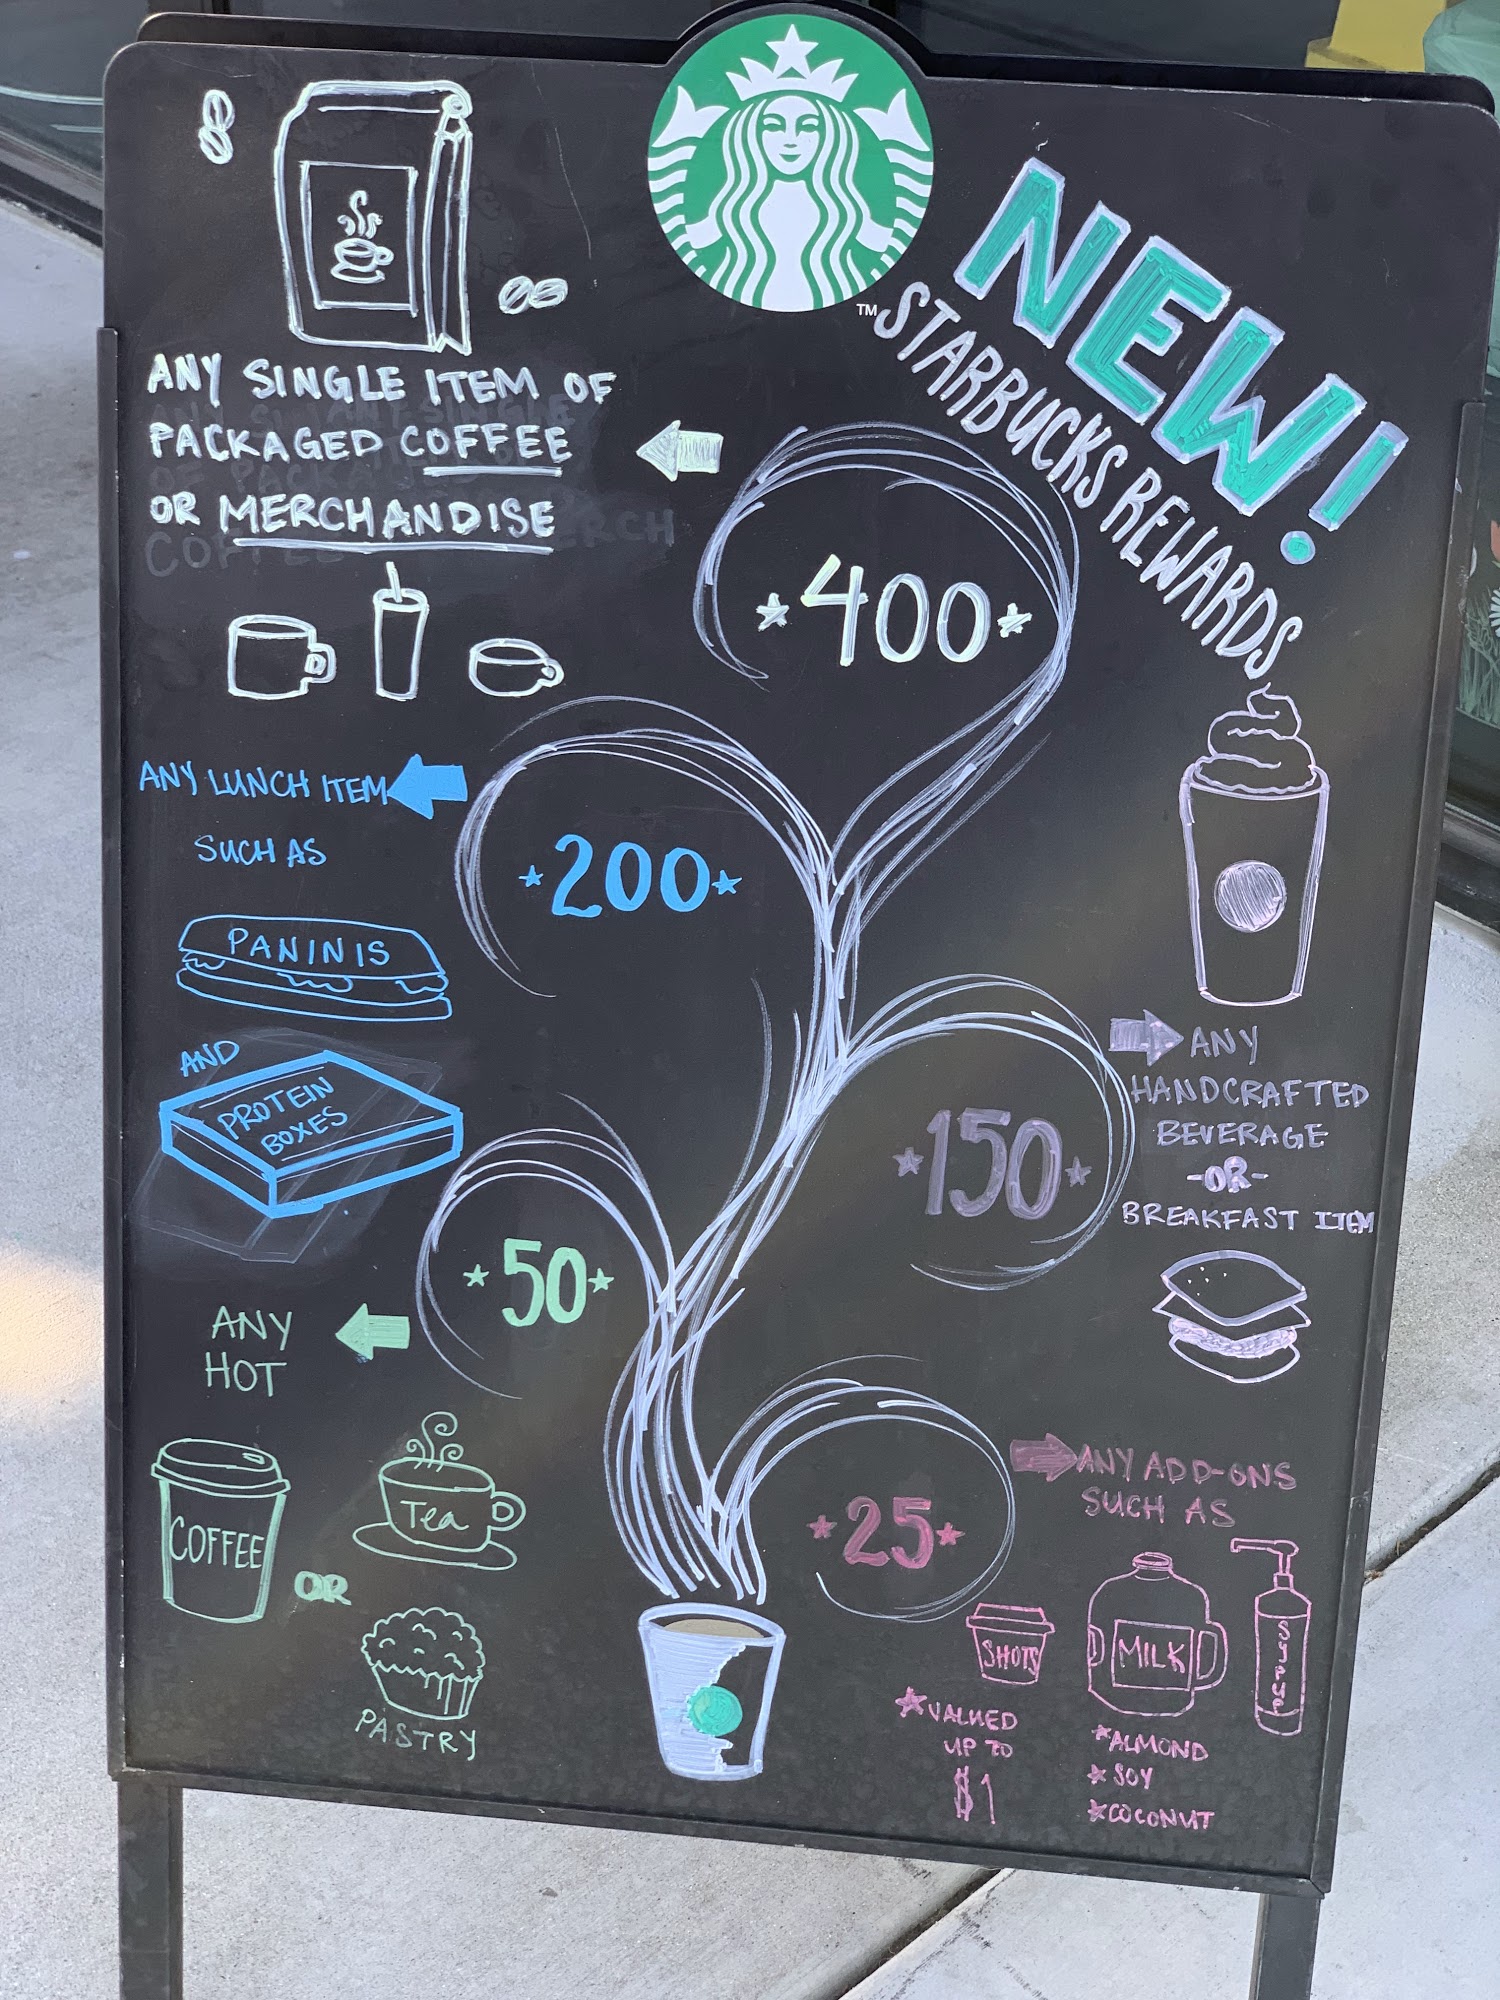 NEW!
STARBUCKS REWARDS
TM
ANY SINGLE ITEM OF
PACKAGED COFFEE
OR MERCHANDISE
400
ANY LUNCH ITEM
SUCH AS
PANINIS
AND
PROTEIN
BOXES
200
150
ANY
HANDCRAFTED
BEVERAGE
-OR-
BREAKFAST ITEM
50
ANY
HOT
COFFEE
Tea
OR
PASTRY
25
ANY ADD-ONS
SUCH AS
SHOTS
MILK
SYRUP
VALUED
UP TO
$1
ALMOND
SOY
COCONUT